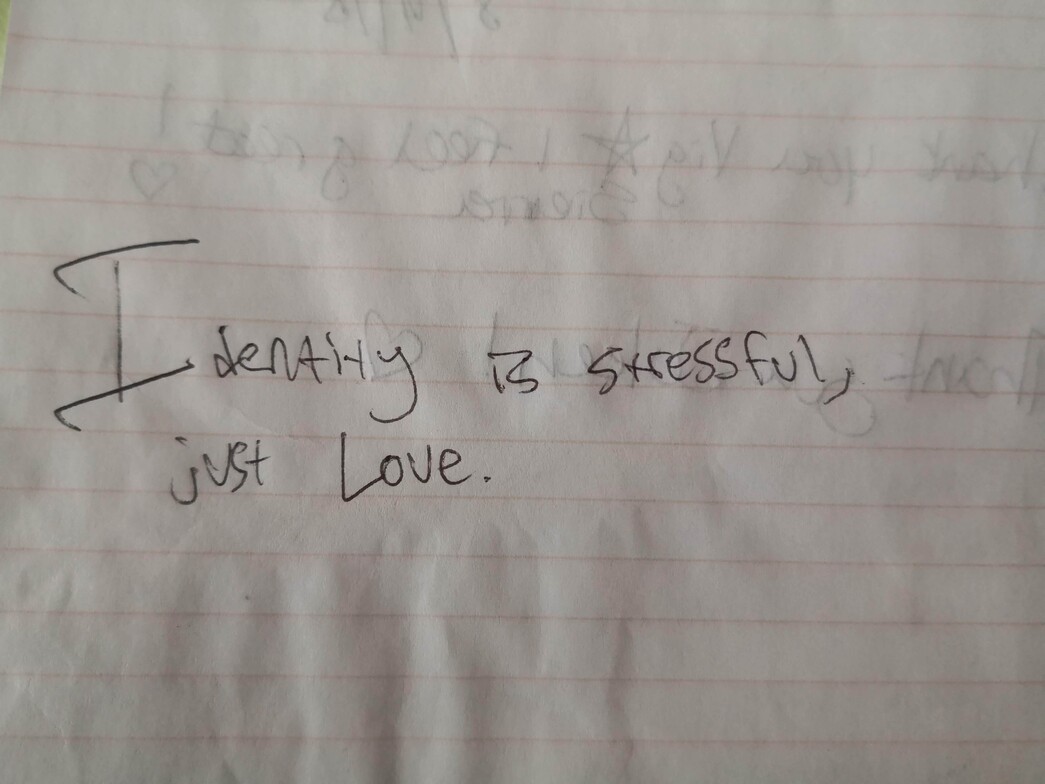 Identity is stressful,
just Love.